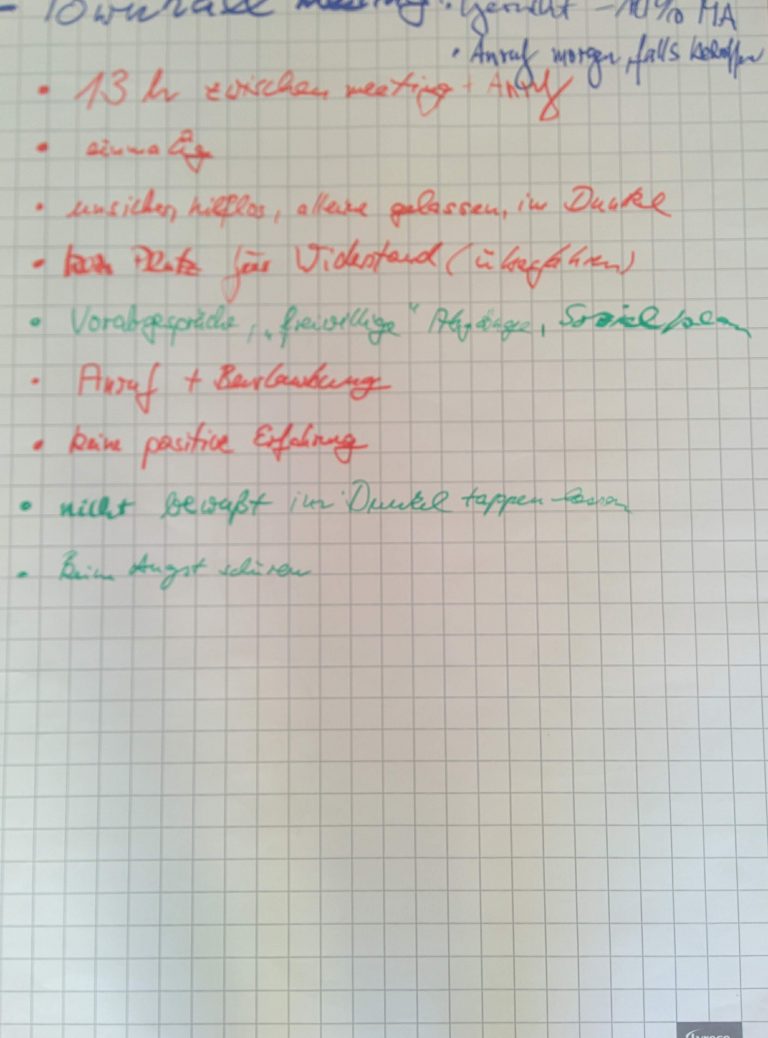 - Townhall meeting · Gerücht -10% MA
· Anruf morgen, falls betroffen
· 13 h zwischen meeting + Anruf
· einmalig
· unsicher, hilflos, alleine gelassen, im Dunkel
· kein Platz für Widerstand (überfahren)
· Vorabgespräche, „freiwillige" Abgänge, Sozialplan
· Anruf + Beurlaubung
· keine positive Erfahrung
· nicht bewußt im Dunkel tappen lassen
· keine Angst schüren